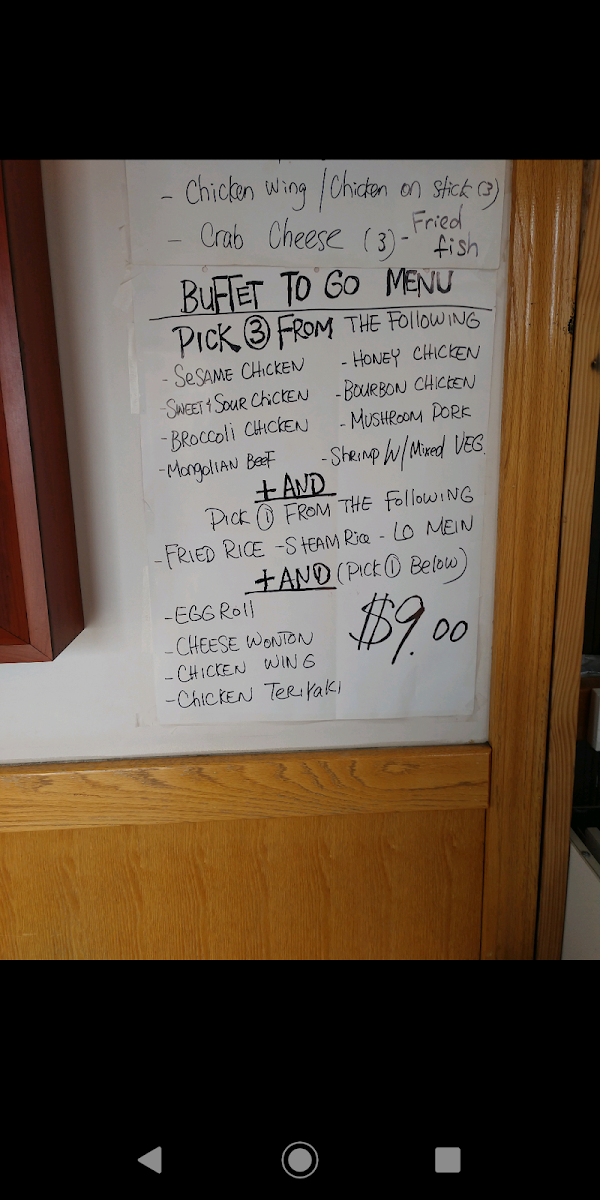 - Chicken Wing / Chicken on Stick (3)
- Crab Cheese (3) - Fried fish
BUFFET TO GO MENU
PICK ③ FROM THE FOLLOWING
- SESAME CHICKEN - HONEY CHICKEN
- SWEET & SOUR CHICKEN - BOURBON CHICKEN
- BROCCOLI CHICKEN - MUSHROOM PORK
- MONGOLIAN BEEF - SHRIMP W/ Mixed VEG.
+AND
PICK ① FROM THE Following
- FRIED RICE - STEAM Rice - LO MEIN
+AND (PICK ① Below)
- EGG Roll
$9.00
- CHEESE WONTON
- CHICKEN WING
- CHICKEN TERIYAKI